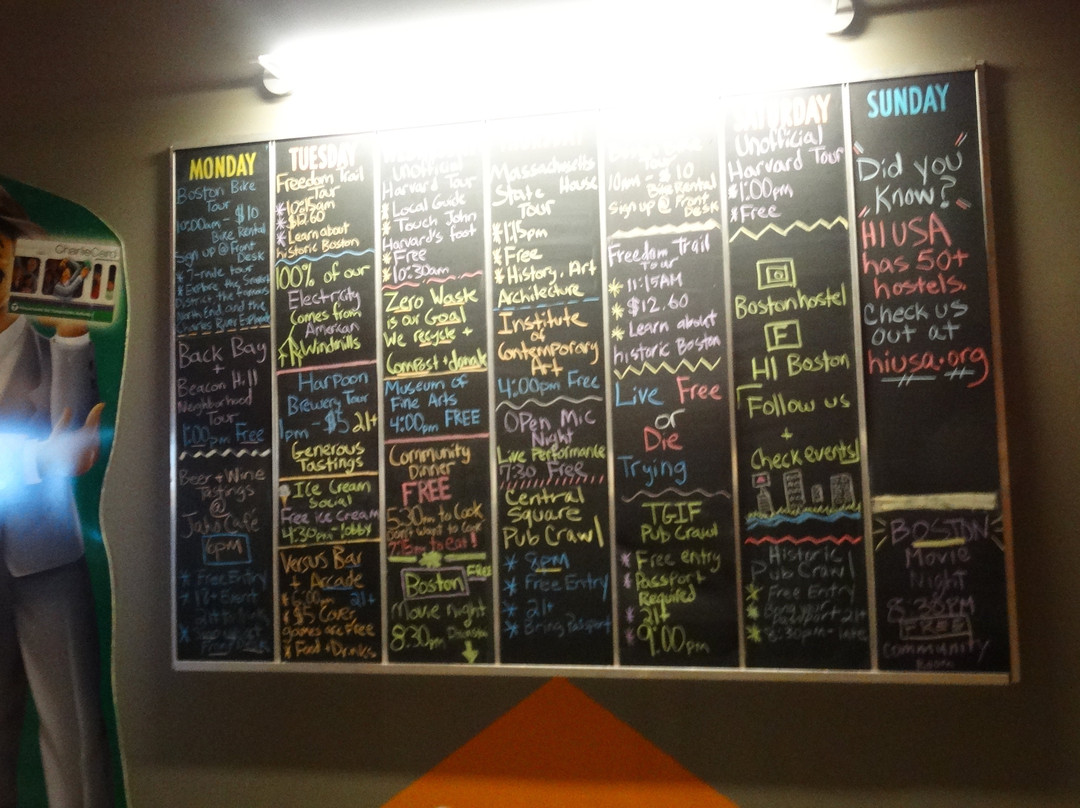 CharlieCard
MONDAY
Boston Bike
Tour
10:00am - $10
Bike Rental
Sign up @ Front
Desk
* 7-mile tour
* Explore the
District, the Famous
North End and the
Charles River Esplanade
Back Bay
+
Beacon Hill
Neighborhood
Tour
1:00pm Free
Beer + Wine
Tastings
@
Café
6pm
* Free Entry
*
*
TUESDAY
Freedom Trail
Tour
* 10:15am
* $12.60
* Learn about
historic Boston
100% of our
Electricity
Comes from
American
Windmills
Harpoon
Brewery Tour
1pm - $5 21+
Generous
Tastings
* Ice Cream
Social
Free ice cream
4:30pm lobby
Versus Bar
+ Arcade
* 21+
* $5 Cover,
games are Free
* Food + Drinks
Unofficial
Harvard Tour
* Local Guide
* Touch John
Harvard's foot
* Free
* 10:30am
Zero Waste
is our Goal
We recycle +
Compost + donate
Museum of
Fine Arts
4:00pm FREE
Community
Dinner
FREE
5:30pm to Cook
Don't want to cook?
to eat!
Boston Free
Movie night
8:30pm Downstairs
Massachusetts
State House
Tour
* 1:15pm
* Free
* History, Art
Architecture
Institute
of
Contemporary
Art
4:00pm Free
Open Mic
Night
Live Performance
7:30 Free
Central
Square
Pub Crawl
* 8pm
* Free Entry
* 21+
* Bring Passport
Tour
10am - $10
Bike Rental
Sign up @ Front
Desk
Freedom Trail
Tour
* 11:15AM
* $12.60
* Learn about
historic Boston
Live Free
or
Die
Trying
TGIF
Pub Crawl
* Free entry
* Passport
Required
* 21+
* 9:00pm
SATURDAY
Unofficial
Harvard Tour
* 1:00pm
* Free
Bostonhostel
F
HI Boston
Follow us
+
Check events!
Historic
Pub Crawl
* Free Entry
* 21+
* 8:30pm - late
SUNDAY
"Did you
Know?"
HI USA
has 50+
hostels.
Check us
out at
hiusa.org
BOSTON
Movie
Night
8:30PM
FREE
Community
Room